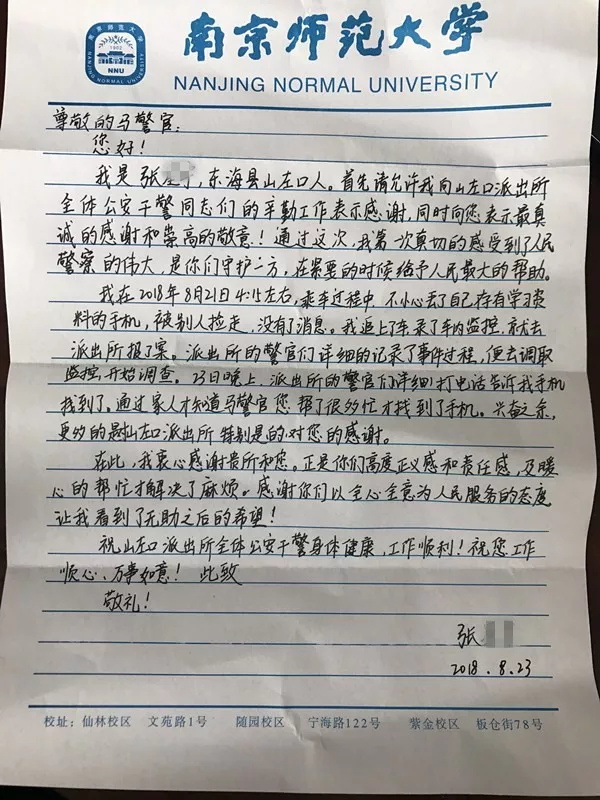 南京师范大学
NANJING NORMAL UNIVERSITY
南京师范大学
1902
NNU
NANJING NORMAL UNIVERSITY
尊敬的马警官：
您好！
我是张，东海县山左口人。首先请允许我向山左口派出所
全体公安干警同志们的辛勤工作表示感谢，同时向您表示最真
诚的感谢和崇高的敬意！通过这次，我第一次真切的感受到了人民
警察的伟大，是你们守护一方，在紧要的时候给予人民最大的帮助。
我在2018年8月21日4:15左右，乘车过程中，不小心丢了自己存有学习资
料的手机，被别人捡走，没有了消息。我追上了车录了车内监控，就去
派出所报了案。派出所的警官们详细的记录了事件过程，便去调取
监控，开始调查。23日晚上，派出所的警官们详细打电话告诉我手机
找到了。通过家人才知道马警官您帮了很多忙才找到了手机。兴奋之余，
更多的是对山左口派出所特别是的对您的感谢。
在此，我衷心感谢贵所和您。正是你们高度正义感和责任感，及暖
心的帮忙才解决了麻烦。感谢你们以全心全意为人民服务的态度
让我看到了无助之后的希望！
祝山左口派出所全体公安干警身体健康，工作顺利！祝您工作
顺心、万事如意！此致
敬礼！
张
2018.8.23
校址：仙林校区 文苑路1号 随园校区 宁海路122号 紫金校区 板仓街78号